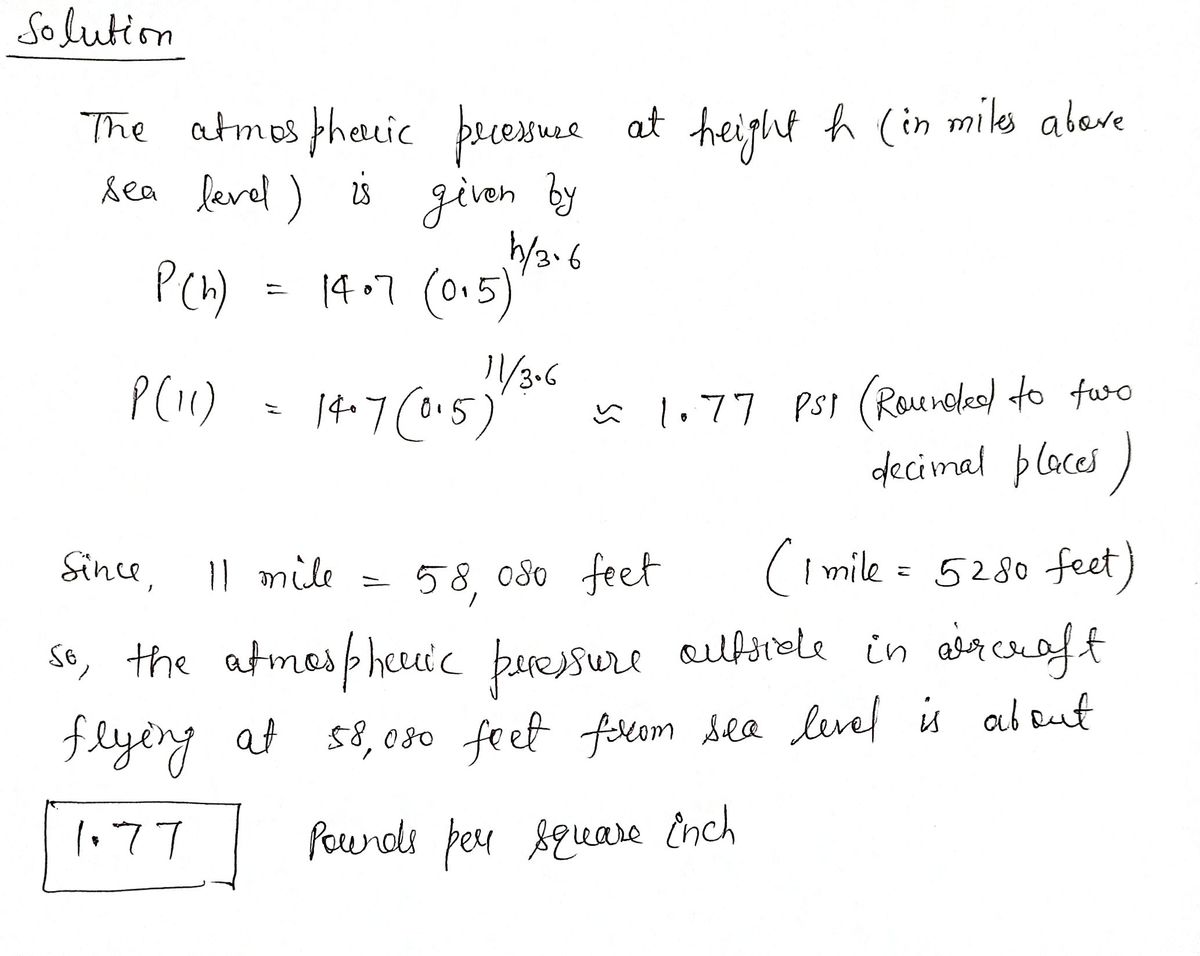 Solution
The atmospheric pressure at height h (in miles above
sea level) is given by
P(h) = 14.7 (0.5)^{h/3.6}
P(11) = 14.7 (0.5)^{11/3.6} ≈ 1.77 PSI (Rounded to two
decimal places)
Since, 11 mile = 58,080 feet (1 mile = 5280 feet)
so, the atmospheric pressure outside in aircraft
flying at 58,080 feet from sea level is about
1.77 Pounds per square inch